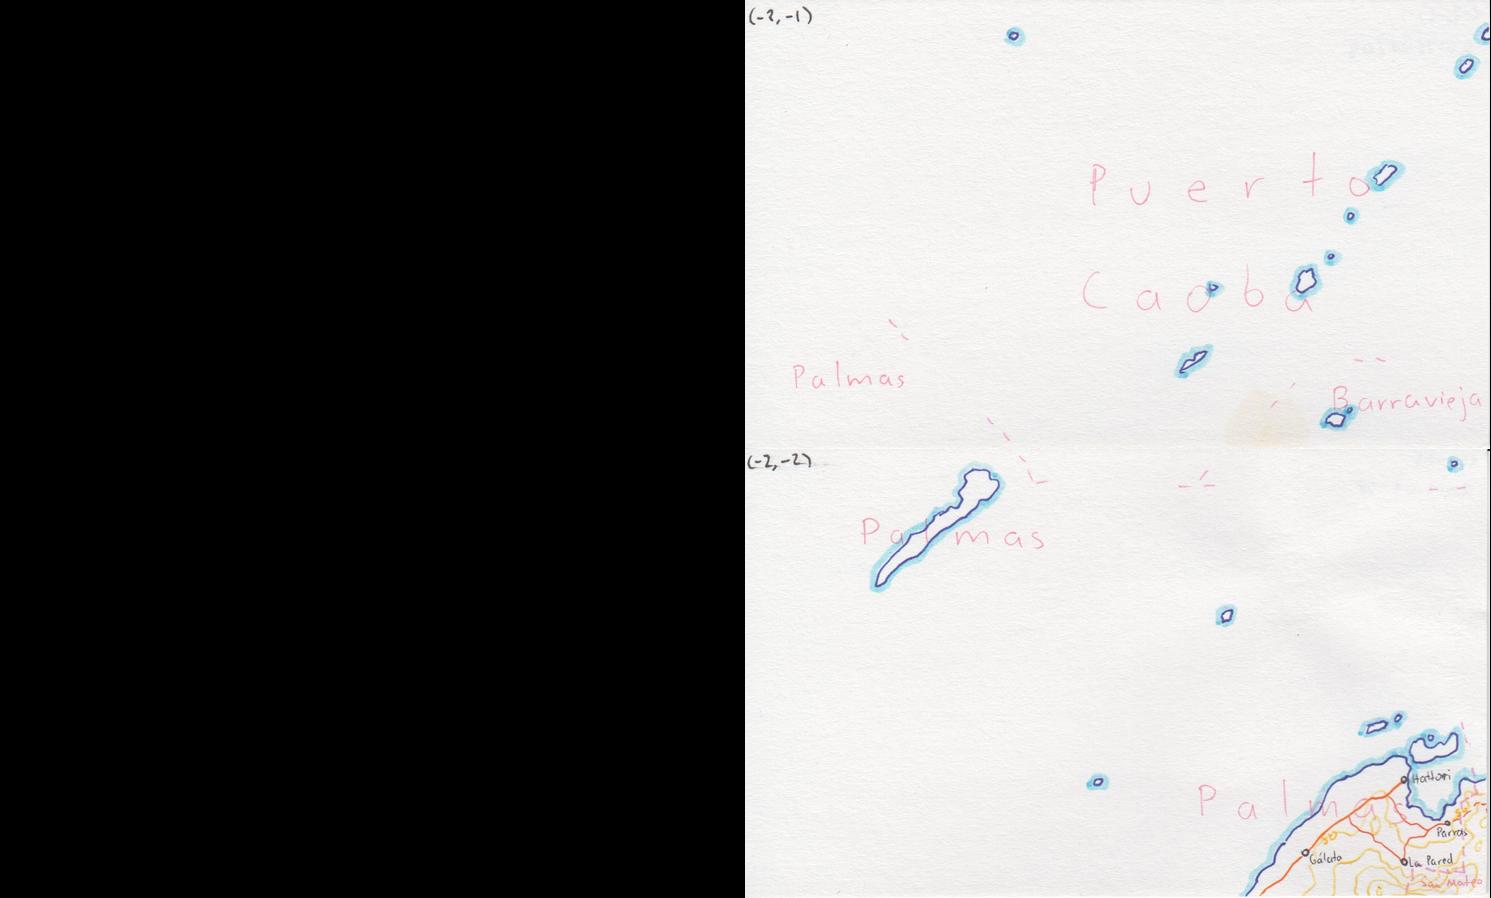 (-2,-1)
Puerto
Caoba
Palmas
Barravieja
(-2,-2)
Palmas
Hattori
Palmas
Parras
50
Gálata
La Pared
San Mateo